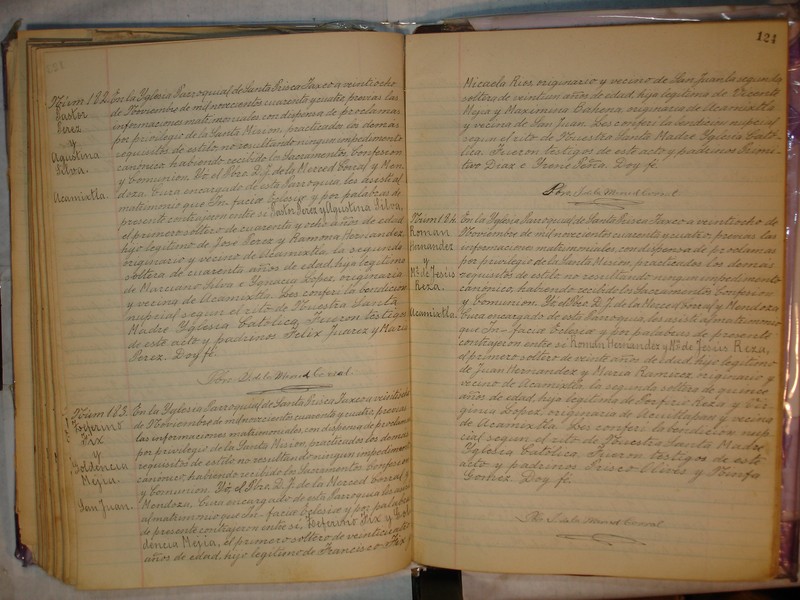 Núm 182. En la Yglesia Parroquial de Santa Prisca Taxco a veintiocho
Pastor de Noviembre de mil novecientos cuarenta y cuatro, previas las
Perez informaciones matrimoniales con dispensa de proclamas
y por privilegio de la Santa Mision, practicados los demas
Agustina requisitos de estilo, no resultando ningun impedimento
Silva. canónico, habiendo recibido los Sacramentos, Confesion
y Comunion. Yo el Pbro. D. J. de la Merced Corral y Men-
Acamixtla. doza, Cura encargado de esta Parroquia, les asistí al
matrimonio que In-facia Eclesia y por palabras de
presente contrajeron entre sí Pastor Perez y Agustina Silva,
el primero soltero de cuarenta y ocho años de edad
hijo legítimo de José Perez y Ramona Hernandez,
originario y vecino de Acamixtla, la segunda
soltera de cuarenta años de edad, hija legítima
de Marciano Silva e Ignacia Lopez, originaria
y vecina de Acamixtla. Les conferí la bendicion
nupcial segun el rito de Nuestra Santa
Madre Yglesia Católica. Fueron testigos
de este acto y padrinos Felix Juarez y Maria
Perez. Doy fé.
Pbro. J. de la Merced Corral.
Núm 183. En la Yglesia Parroquial de Santa Prisca Taxco a veintiocho
de Noviembre de mil novecientos cuarenta y cuatro, previas
las informaciones matrimoniales, con dispensa de proclamas
y por privilegio de la Santa Mision, practicados los demas
requisitos de estilo no resultando ningun impedimento
Mejia. canónico, habiendo recibido los Sacramentos, Confesion
y Comunion. Yo, el Pbro. D. J. de la Merced Corral y
San Juan. Mendoza, Cura encargado de esta Parroquia les asistí
al matrimonio que In-facia Eclesia y por palabras
de presente contrajeron entre sí,
Mejia, el primero soltero de veinticuatro
años de edad, hijo legítimo de Francisco
124
Micaela Rios, originario y vecino de San Juan la segunda
soltera de veintiun años de edad, hija legítima de Vicente
Mejia y Maximina Bahena, originaria de Acamixtla
y vecina de San Juan. Les conferí la bendicion nupcial
segun el rito de Nuestra Santa Madre Yglesia Cató-
lica. Fueron testigos de este acto y padrinos Primi-
tivo Diaz e Yrene Peña. Doy fé.
Pbro. J. de la Merced Corral
Núm 184. En la Yglesia Parroquial de Santa Prisca Taxco a veintiocho de
Roman Noviembre de mil novecientos cuarenta y cuatro, previas las
Hernandez informaciones matrimoniales, con dispensa de proclamas
y por privilegio de la Santa Mision, practicados los demas
Ma. de Jesús requisitos de estilo no resultando ningun impedimento
Reza. canónico, habiendo recibido los Sacramentos, Confesion
y Comunion. Yo, el Pbro. D. J. de la Merced Corral y Mendoza
Acamixtla. Cura encargado de esta Parroquia, les asistí al matrimonio
que In-facia Eclesia y por palabras de presente
contrajeron entre sí Román Hernández y Ma. de Jesús Reza,
el primero soltero de veinte años de edad, hijo legítimo
de Juan Hernandez y Maria Ramirez, originario y
vecino de Acamixtla, la segunda soltera de quince
años de edad, hija legítima de Porfirio Reza y Vir-
ginia Lopez, originaria de Acuitlapan y vecina
de Acamixtla. Les conferí la bendicion nup-
cial segun el rito de Nuestra Santa Madre
Yglesia Católica. Fueron testigos de este
acto y padrinos Prisco Olivos y Ninfa
Gomez. Doy fé.
Pbro. J. de la Merced Corral